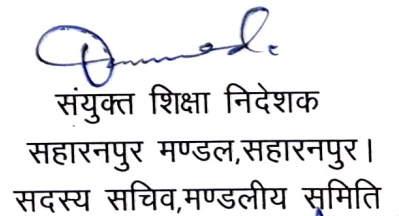 संयुक्त शिक्षा निदेशक
सहारनपुर मण्डल,सहारनपुर।
सदस्य सचिव,मण्डलीय समिति